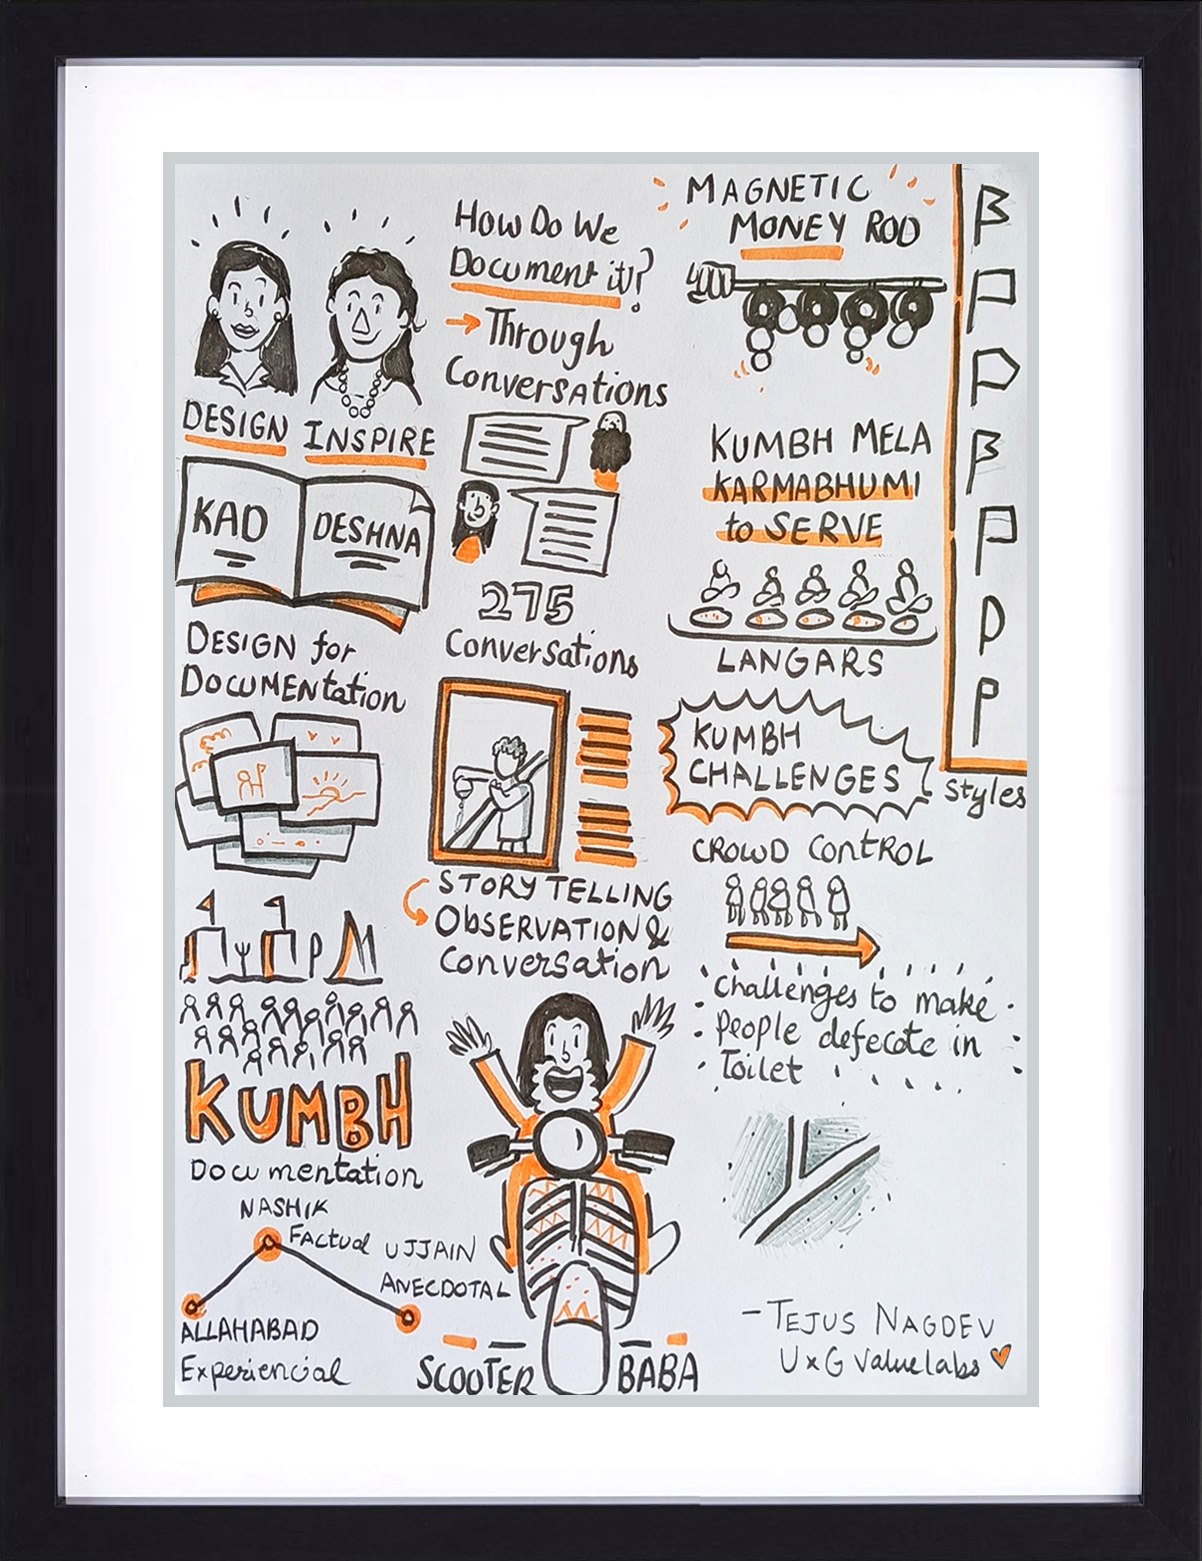 DESIGN INSPIRE
KAD
DESHNA
DESIGN for
DOCUMENtation
KUMBH
Documentation
NASHIK
Factual
UJJAIN
ANECDOTAL
ALLAHABAD
Experiencial
How Do We
Document it!?
Through
Conversations
275
Conversations
STORY TELLING
OBSERVATION &
Conversation
SCOOTER BABA
MAGNETIC
MONEY ROD
KUMBH MELA
KARMABHUMI
to SERVE
LANGARS
KUMBH
CHALLENGES
CROWD CONTROL
Challenges to make
People defecate in
Toilet
B
P
P
B
P
P
P
Styles
- TEJUS NAGDEV
UxG Valuelabs